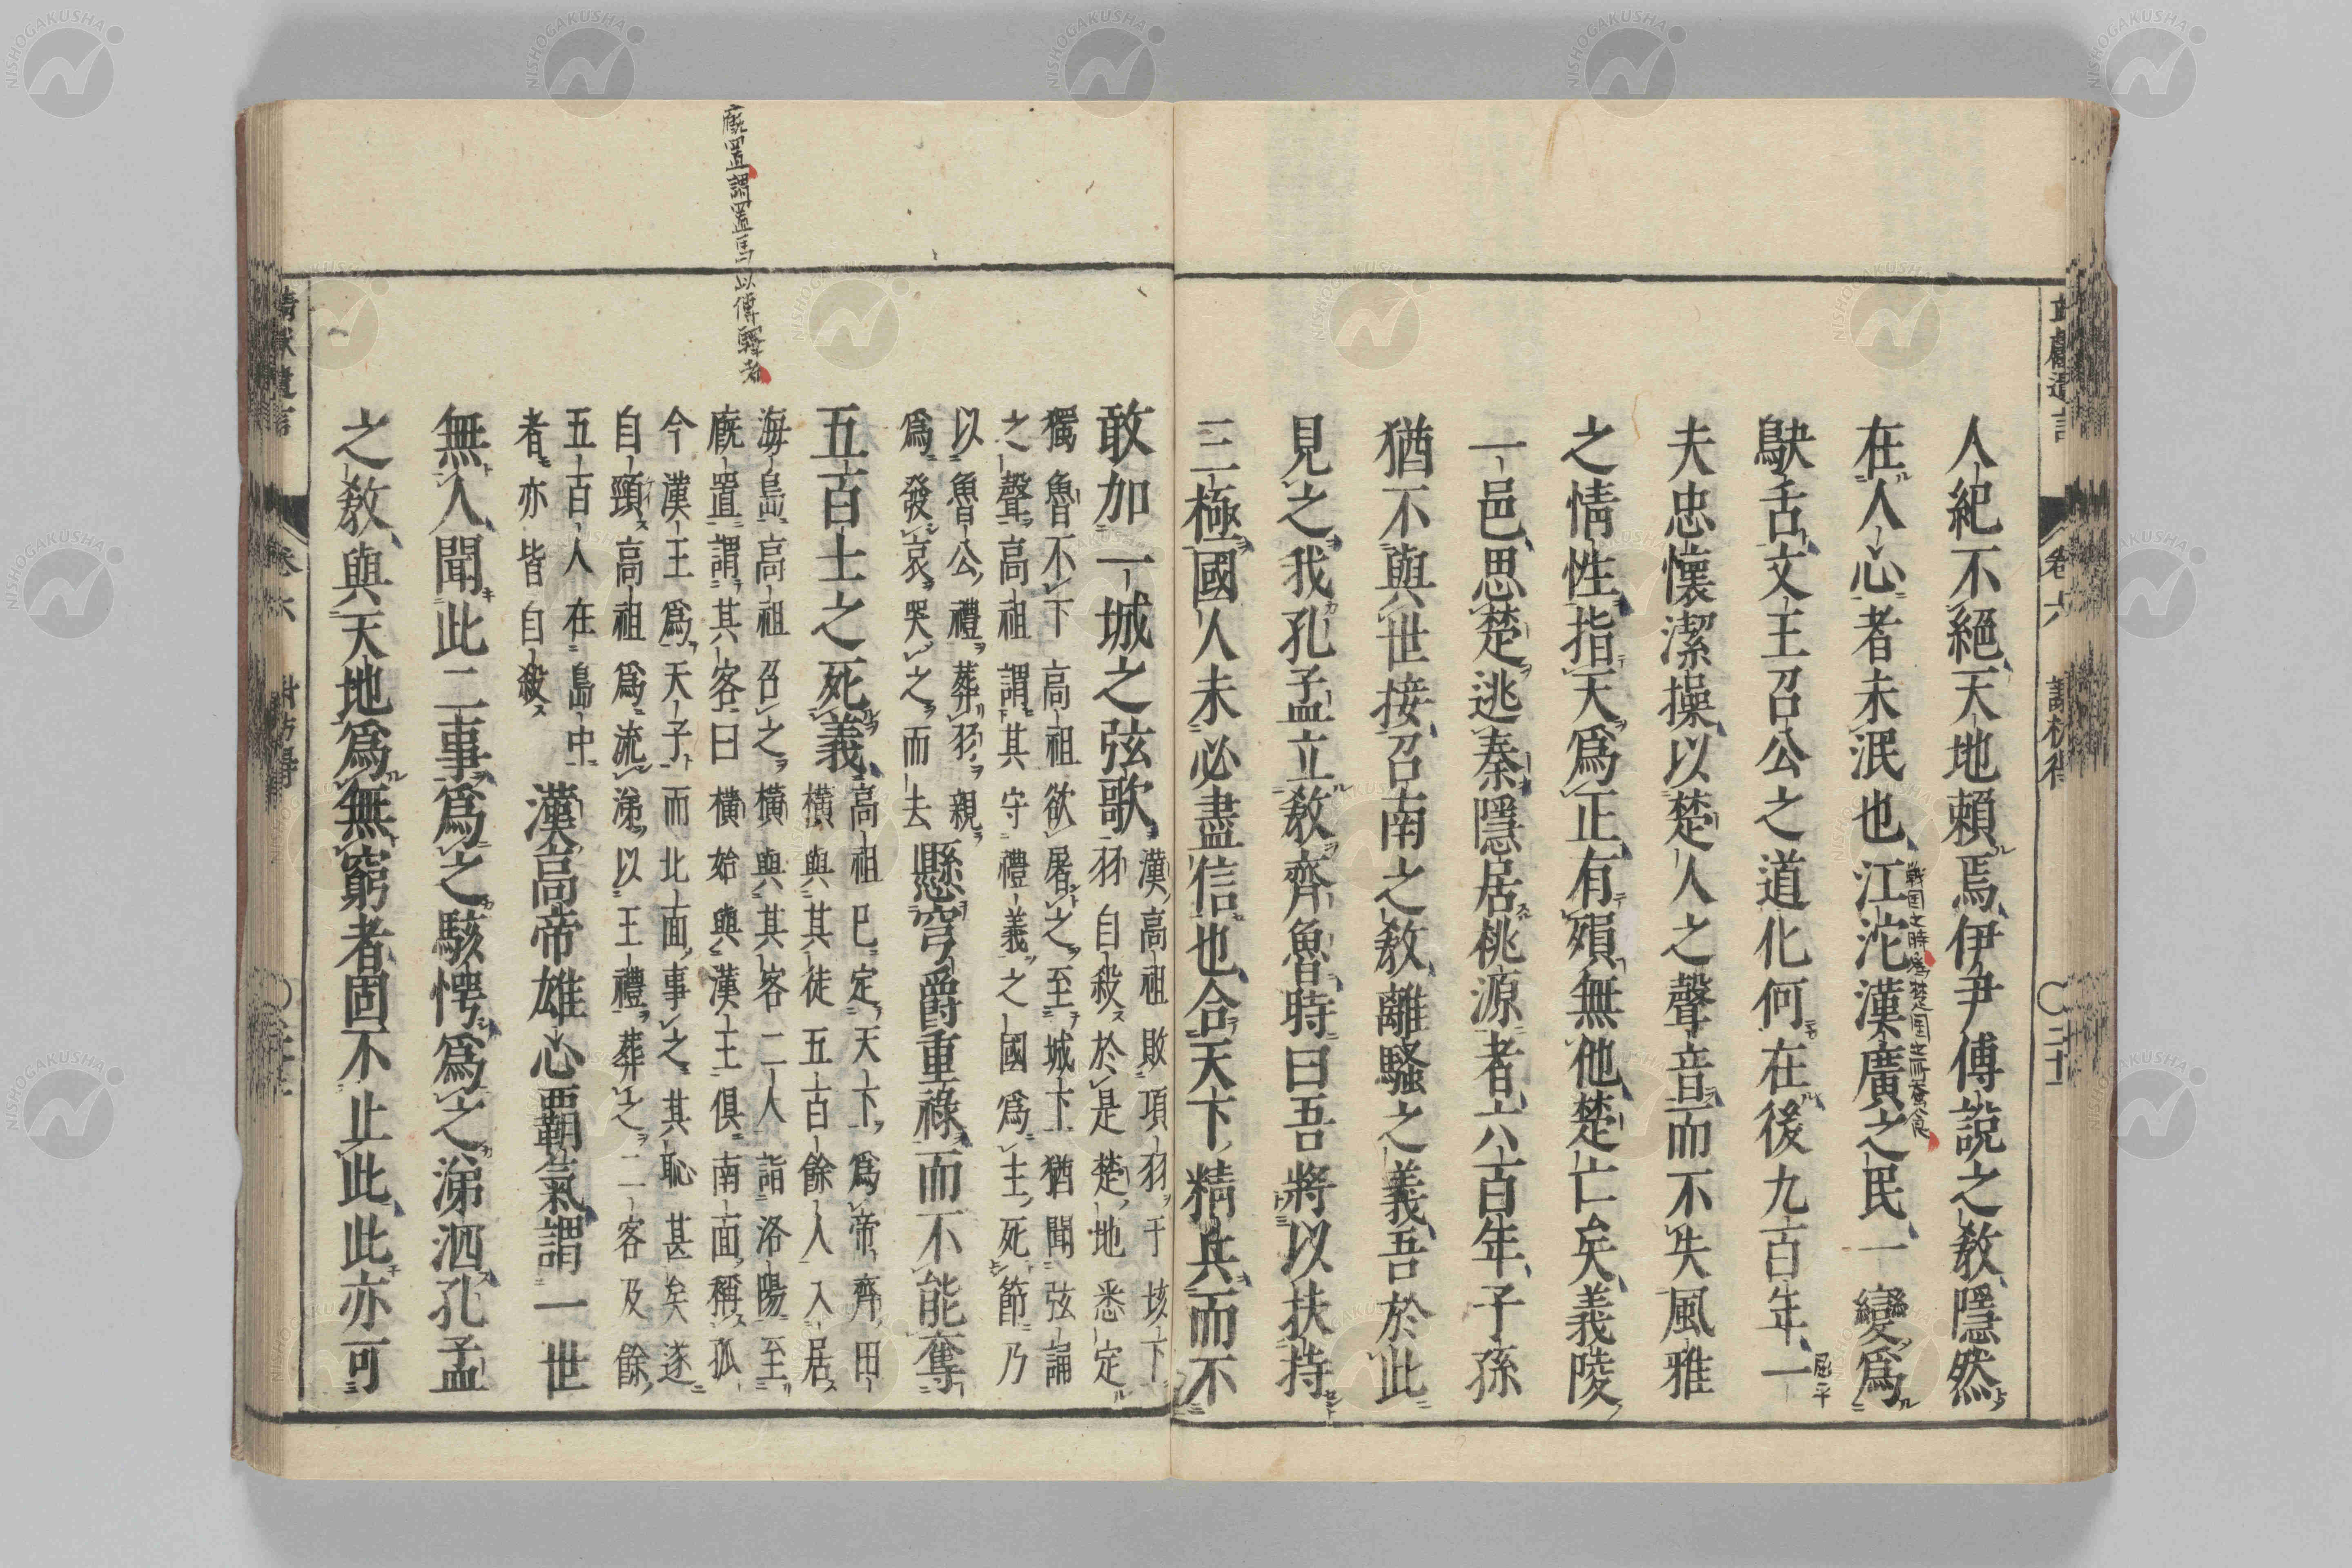 人紀不絕天地賴焉伊尹傅說之敎隱然
在人心者未泯也江沱漢廣之民一變爲
戰国之時為楚国之所蚕食
鴃舌文王召公之道化何在後九百年一
屈平
夫忠懷潔操以楚人之聲音而不失風雅
之情性指天爲正有殞無他楚亡矣義陵
一邑思楚逃秦隱居桃源者六百年子孫
猶不與世接召南之敎離騷之義吾於此
見之我孔孟立敎齊魯時曰吾將以扶持
三極國人未必盡信也合天下精兵而不
敢加一城之弦歌
漢高祖敗項羽于垓下
羽自殺於是楚地悉定
獨魯不下高祖欲屠之至城下猶聞弦誦
之聲高祖謂其守禮義之國爲主死節乃
以魯公禮葬羽親
爲發哀哭之而去
懸穹爵重祿而不能奪
五百士之死義
高祖已定天下爲帝齊田
橫與其徒五百餘人入居
海島高祖召之橫與其客二人詣洛陽至
廐置謂其客曰橫始與漢王俱南面稱孤
今漢王爲天子而北面事之其恥甚矣遂
自頸高祖爲流涕以王禮葬之二客及餘
五百人在島中
者亦皆自殺
漢高帝雄心霸氣謂一世
無人聞此二事爲之駭愕爲之涕泗孔孟
之敎與天地爲無窮者固不止此此亦可
廐置謂置馬以傳驛者
卷六
卷六